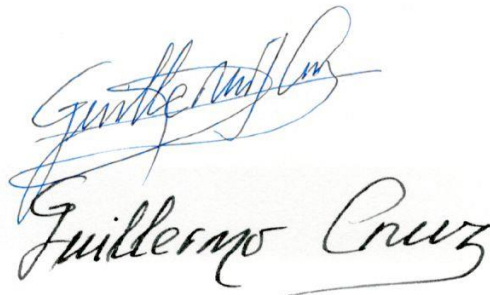 Guillermo Cruz
Guillermo Cruz